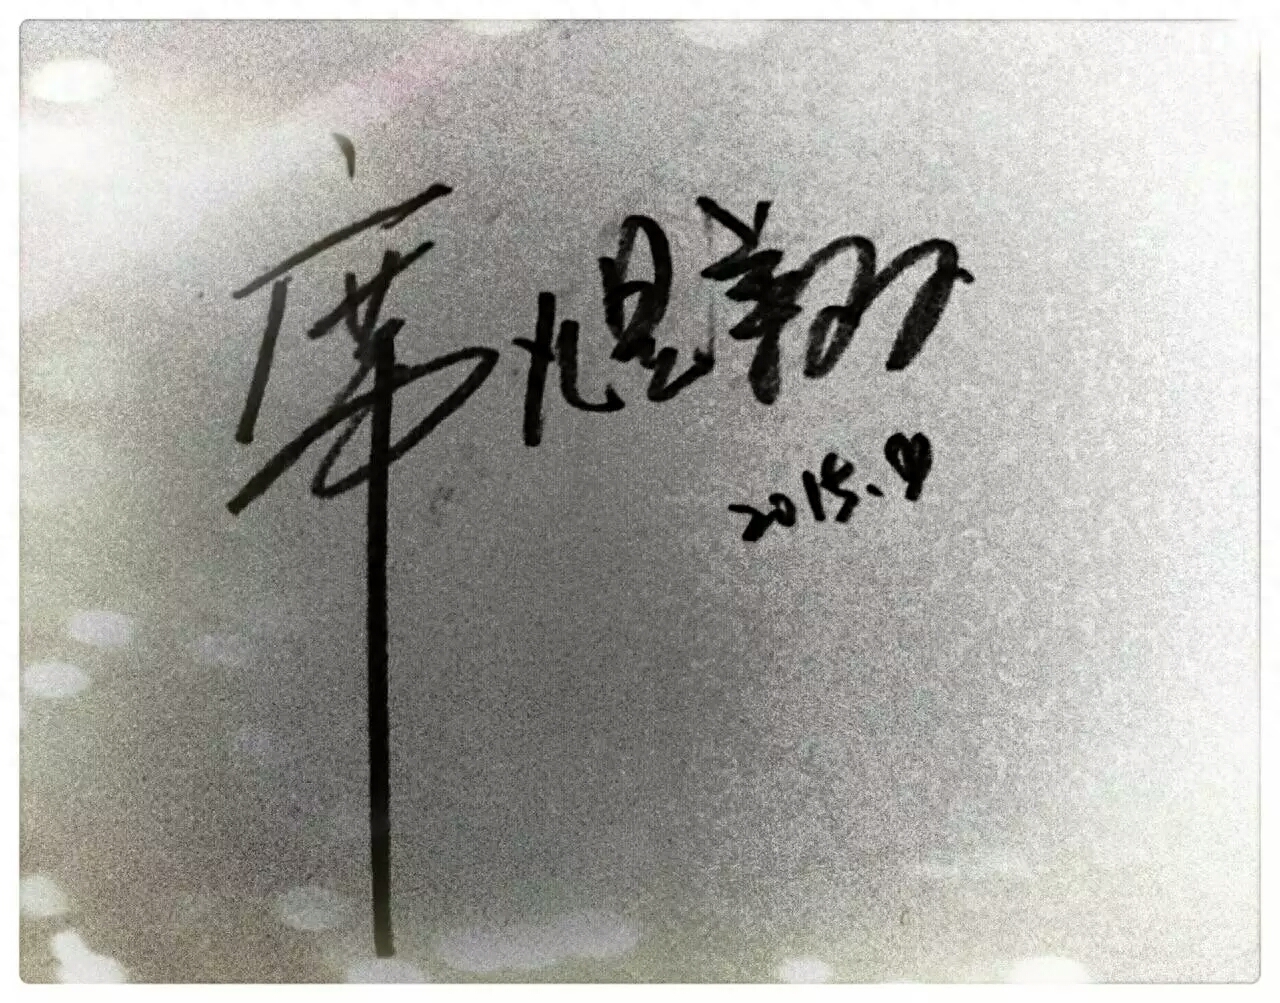 席焜翔
2015.♡